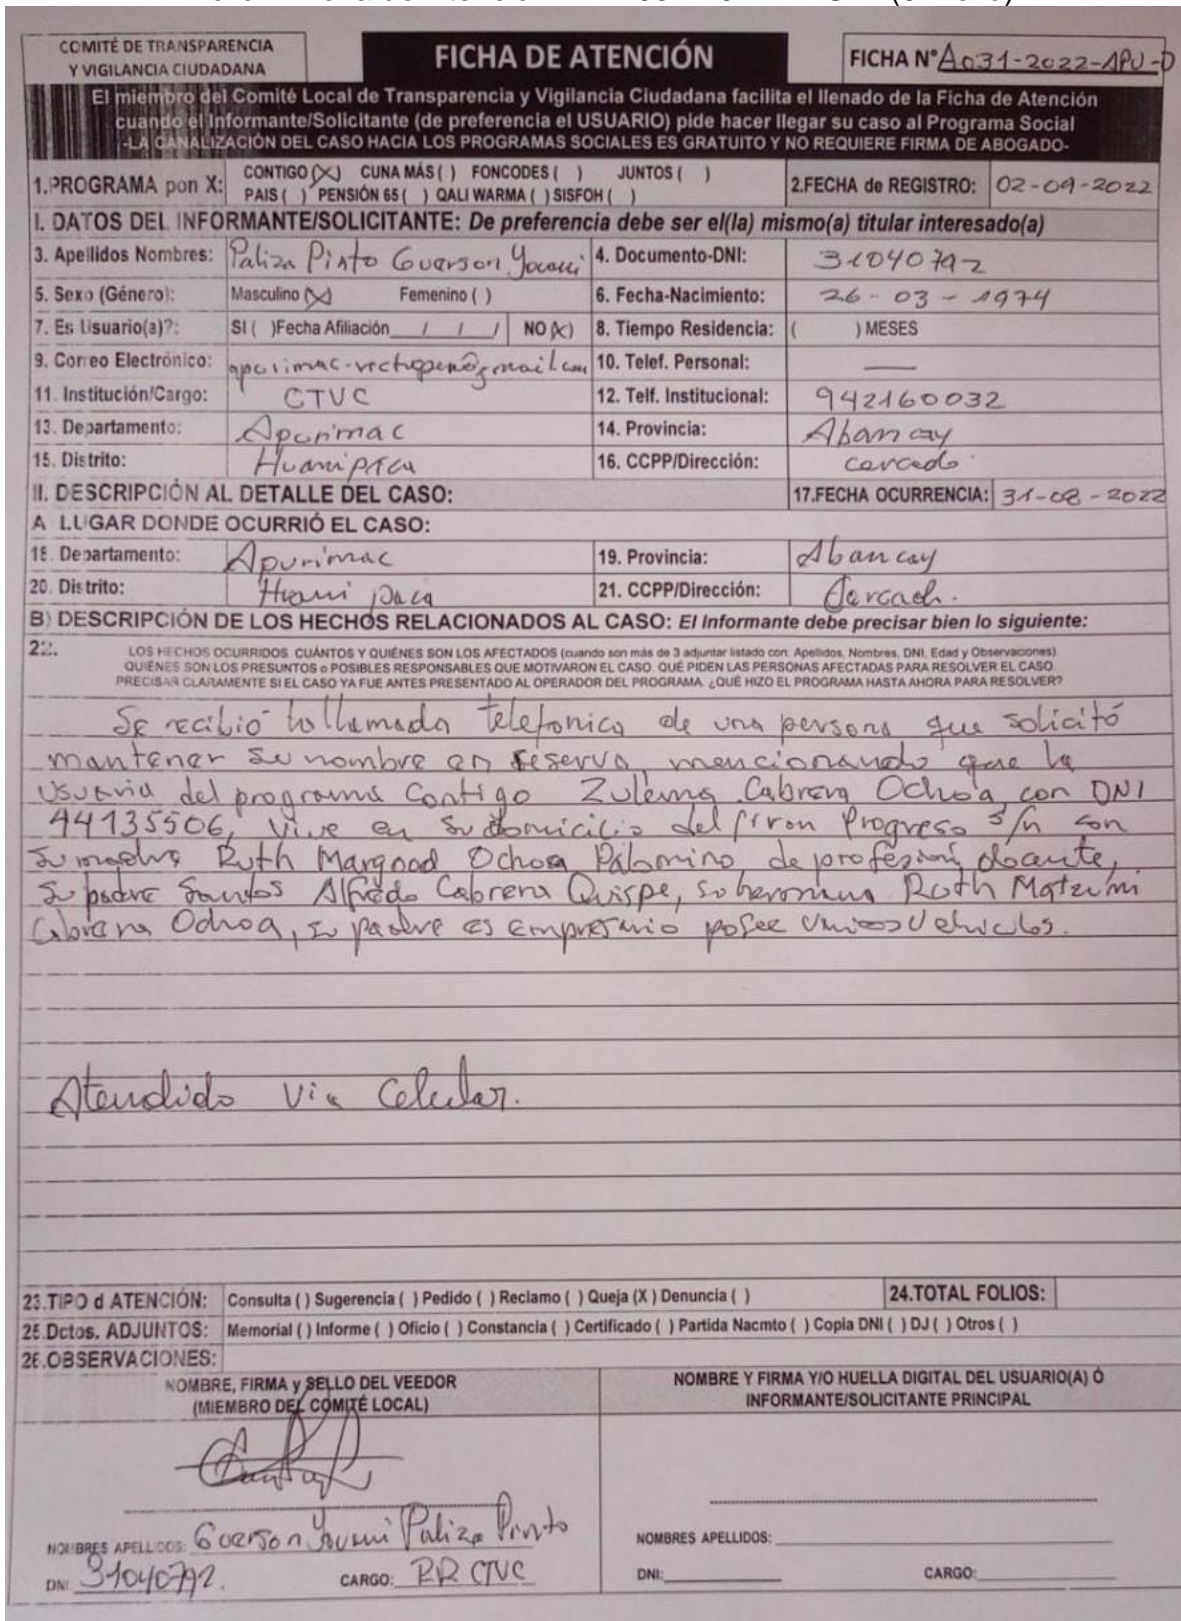 COMITÉ DE TRANSPARENCIA
Y VIGILANCIA CIUDADANA
FICHA DE ATENCIÓN
FICHA N° A031-2022-APU-D
El miembro del Comité Local de Transparencia y Vigilancia Ciudadana facilita el llenado de la Ficha de Atención
cuando el Informante/Solicitante (de preferencia el USUARIO) pide hacer llegar su caso al Programa Social
-LA CANALIZACIÓN DEL CASO HACIA LOS PROGRAMAS SOCIALES ES GRATUITO Y NO REQUIERE FIRMA DE ABOGADO-
1.PROGRAMA pon X: CONTIGO (X) CUNA MÁS ( ) FONCODES ( ) JUNTOS ( )
PAIS ( ) PENSIÓN 65 ( ) QALI WARMA ( ) SISFOH ( )
2.FECHA de REGISTRO: 02-09-2022
I. DATOS DEL INFORMANTE/SOLICITANTE: De preferencia debe ser el(la) mismo(a) titular interesado(a)
3. Apellidos Nombres: Paliza Pinto Guerson 4. Documento-DNI: 31040792
5. Sexo (Género): Masculino (X) Femenino ( ) 6. Fecha-Nacimiento: 26-03-1974
7. Es Usuario(a)?: SI ( )Fecha Afiliación / / / NO (X) 8. Tiempo Residencia: ( ) MESES
9. Correo Electrónico: 10. Telef. Personal: —
11. Institución/Cargo: CTVC 12. Telf. Institucional: 942160032
13. Departamento: Apurimac 14. Provincia: Abancay
15. Distrito: Huanipaca 16. CCPP/Dirección: cercado
II. DESCRIPCIÓN AL DETALLE DEL CASO: 17.FECHA OCURRENCIA: 31-08-2022
A LUGAR DONDE OCURRIÓ EL CASO:
18. Departamento: Apurimac 19. Provincia: Abancay
20. Distrito: Huanipaca 21. CCPP/Dirección: Cercado.
B) DESCRIPCIÓN DE LOS HECHOS RELACIONADOS AL CASO: El Informante debe precisar bien lo siguiente:
22. LOS HECHOS OCURRIDOS. CUÁNTOS Y QUIÉNES SON LOS AFECTADOS (cuando son más de 3 adjuntar listado con: Apellidos, Nombres, DNI, Edad y Observaciones).
QUIÉNES SON LOS PRESUNTOS o POSIBLES RESPONSABLES QUE MOTIVARON EL CASO. QUÉ PIDEN LAS PERSONAS AFECTADAS PARA RESOLVER EL CASO.
PRECISAR CLARAMENTE SI EL CASO YA FUE ANTES PRESENTADO AL OPERADOR DEL PROGRAMA. ¿QUÉ HIZO EL PROGRAMA HASTA AHORA PARA RESOLVER?
Se recibió la llamada telefonica de una persona que solicitó
mantener su nombre en reserva, mencionando que la
Usuaria del programa Contigo Zulema Cabrera Ochoa, con DNI
44135506, vive en su domicilio del jiron Progreso s/n con
su madre Ruth Ochoa Palomino de profesion docente,
su padre Santos Alfredo Cabrera Quispe, su hermana Ruth
Cabrera Ochoa, su padre es empresario posee vehiculos.
Atendido Via Celular.
23.TIPO d ATENCIÓN: Consulta ( ) Sugerencia ( ) Pedido ( ) Reclamo ( ) Queja (X ) Denuncia ( ) 24.TOTAL FOLIOS:
25.Dctos. ADJUNTOS: Memorial ( ) Informe ( ) Oficio ( ) Constancia ( ) Certificado ( ) Partida Nacmto ( ) Copia DNI ( ) DJ ( ) Otros ( )
26.OBSERVACIONES:
NOMBRE, FIRMA y SELLO DEL VEEDOR
(MIEMBRO DEL COMITÉ LOCAL)
NOMBRE Y FIRMA Y/O HUELLA DIGITAL DEL USUARIO(A) Ó
INFORMANTE/SOLICITANTE PRINCIPAL
NOMBRES APELLIDOS: Guerson Paliza Pinto
DNI: 31040792. CARGO: RR CTVC
NOMBRES APELLIDOS:
DNI: CARGO: